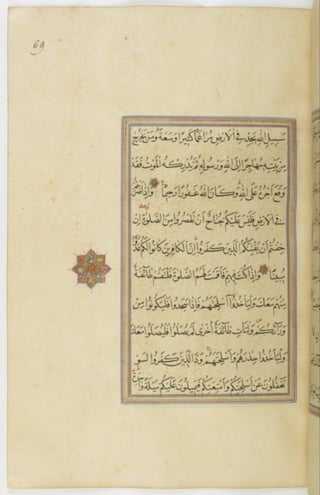 69
سَبِيلِ اللهِ يَجِدْ فِي الْاَرْضِ مُرَاغَمًا كَثِيرًا وَسَعَةً وَمَنْ يَخْرُجْ
مِنْ بَيْتِهِ مُهَاجِرًا اِلَى اللهِ وَرَسُولِهِ ثُمَّ يُدْرِكْهُ الْمَوْتُ فَقَدْ
وَقَعَ اَجْرُهُ عَلَى اللهِ وَكَانَ اللهُ غَفُورًا رَحِيمًا وَاِذَا ضَرَبْتُمْ
فِي الْاَرْضِ فَلَيْسَ عَلَيْكُمْ جُنَاحٌ اَنْ تَقْصُرُوا مِنَ الصَّلٰوةِ اِنْ
خِفْتُمْ اَنْ يَفْتِنَكُمُ الَّذِينَ كَفَرُوا اِنَّ الْكَافِرِينَ كَانُوا لَكُمْ عَدُوًّا
مُبِينًا وَاِذَا كُنْتَ فِيهِمْ فَاَقَمْتَ لَهُمُ الصَّلٰوةَ فَلْتَقُمْ طَائِفَةٌ
مِنْهُمْ مَعَكَ وَلْيَأْخُذُوا اَسْلِحَتَهُمْ فَاِذَا سَجَدُوا فَلْيَكُونُوا مِنْ
وَرَائِكُمْ وَلْتَأْتِ طَائِفَةٌ اُخْرٰى لَمْ يُصَلُّوا فَلْيُصَلُّوا مَعَكَ
وَلْيَأْخُذُوا حِذْرَهُمْ وَاَسْلِحَتَهُمْ وَدَّ الَّذِينَ كَفَرُوا لَوْ
تَغْفُلُونَ عَنْ اَسْلِحَتِكُمْ وَاَمْتِعَتِكُمْ فَيَمِيلُونَ عَلَيْكُمْ مَيْلَةً وَاحِدَةً